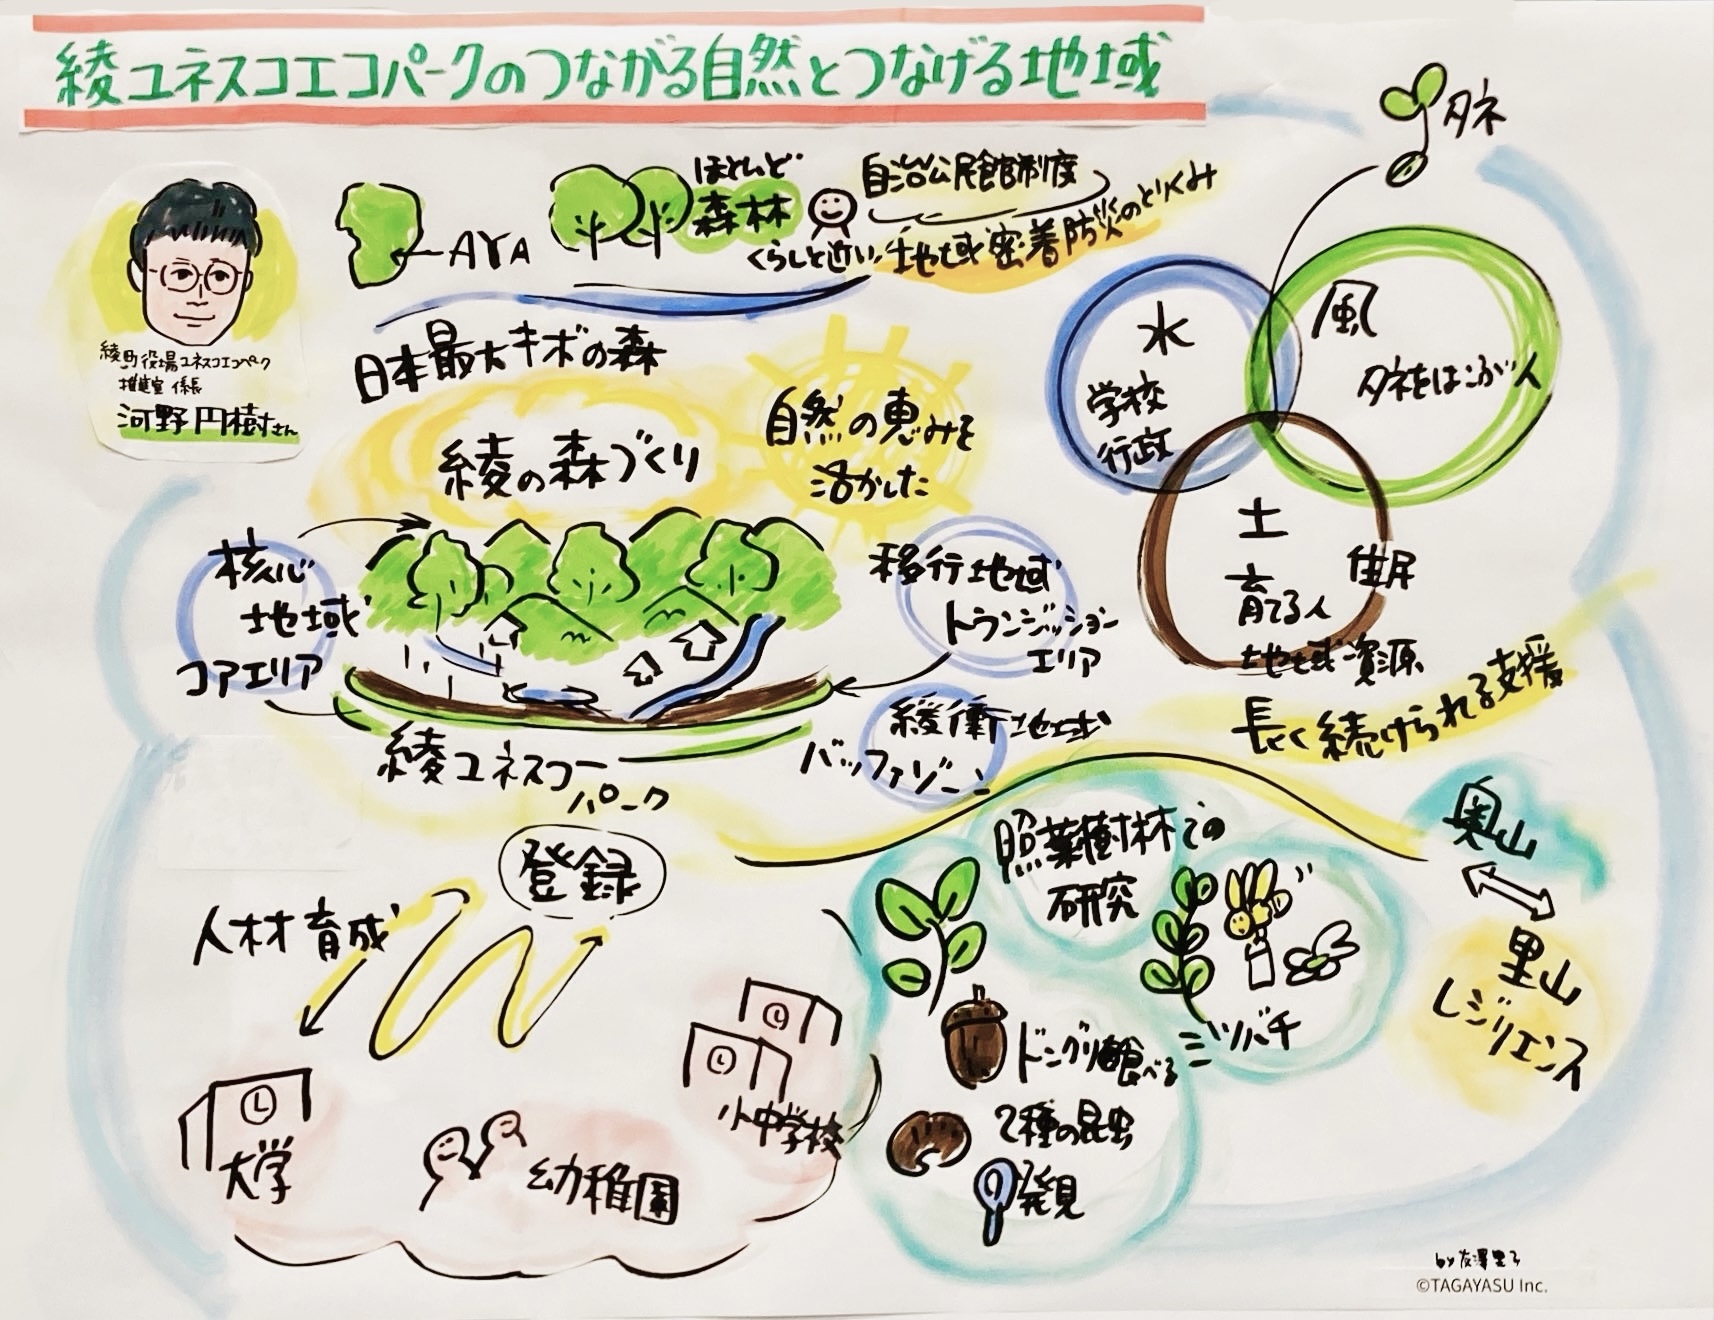 綾ユネスコエコパークのつながる自然とつなげる地域
綾町役場ユネスコエコパーク
推進室 係長
河野円樹さん
←AYA
ほとんど
森林
自治公民館制度
くらしと近い
地域密着防災のとりくみ
日本最大キボの森
綾の森づくり
自然の恵みを
活かした
核心
地域
コアエリア
移行地域
トランジッション
エリア
緩衝地域
バッファゾーン
綾ユネスコー
パーク
タネ
水
学校
行政
風
タネをはこぶ人
土
育てる人
住民
地域資源
長く続けられる支援
登録
人材育成
大学
幼稚園
小中学校
照葉樹林での
研究
ミツバチ
ドングリ食べる
2種の昆虫
発見
奥山
里山
レジリエンス
©TAGAYASU Inc.